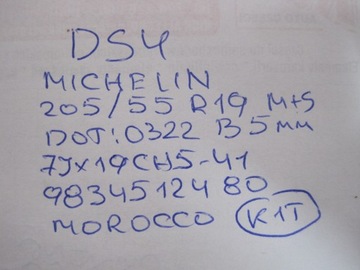 DS4
MICHELIN
205/55 R19 M+S
DOT:0322 B5mm
7Jx19CH5-41
9834512480
MOROCCO K1T